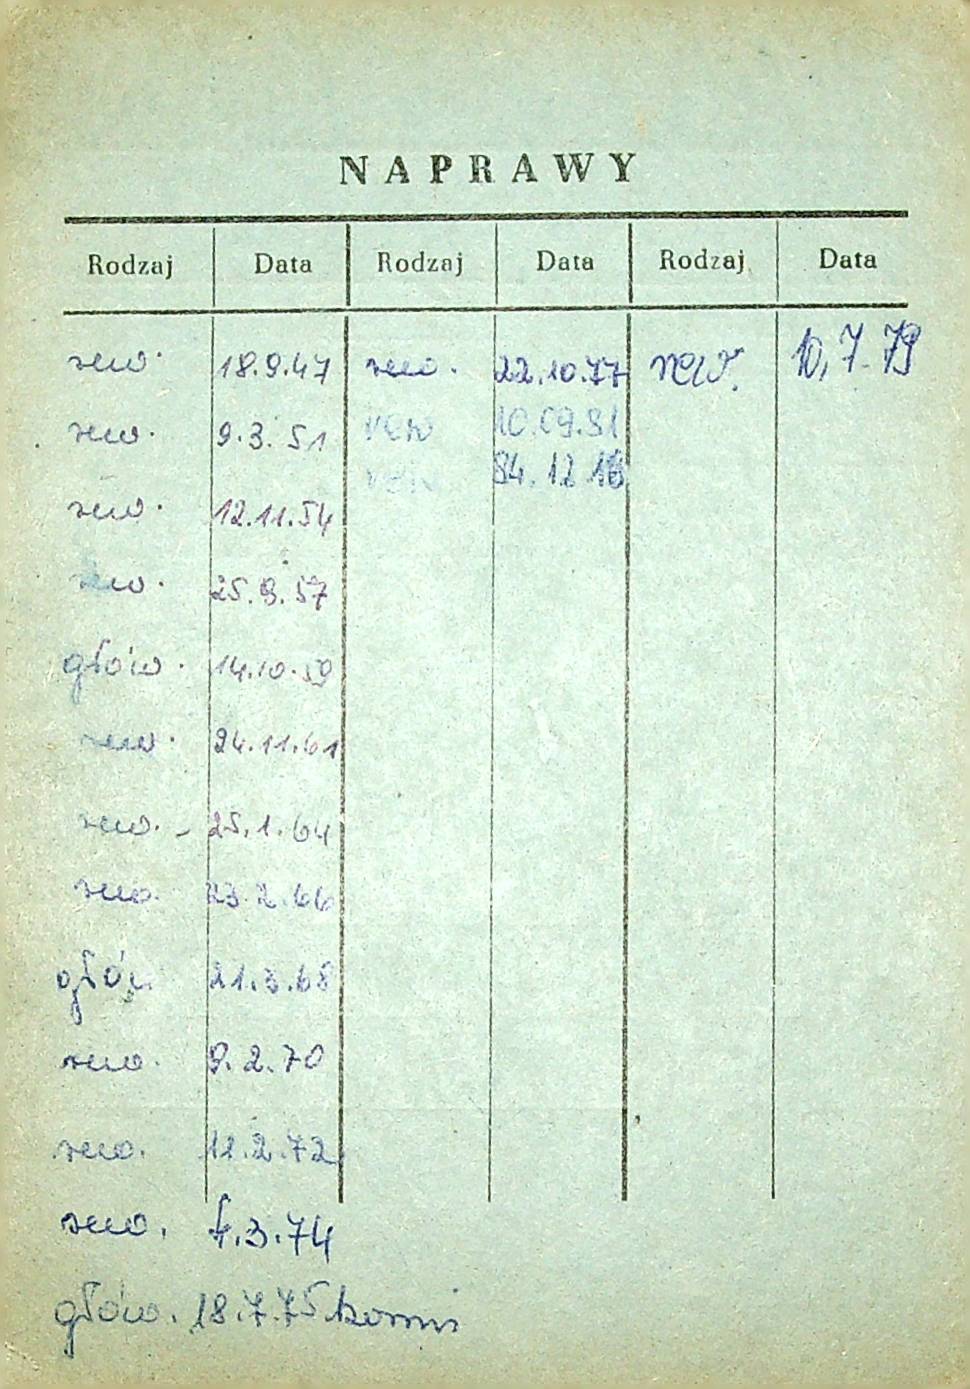 NAPRAWY
Rodzaj Data Rodzaj Data Rodzaj Data
rew. 18.9.47 rew. 22.10.77 rew. 10,7.79
rew. 9.3.51 rew 10.09.81
rew 84.12.18
rew. 12.11.54
rew. 25.9.57
głów. 14.10.59
rew. 24.11.61
rew. - 25.1.64
rew. 23.2.66
głów. 21.3.68
rew. 9.2.70
rew. 11.2.72
rew. 4.3.74
głów. 18.7.75